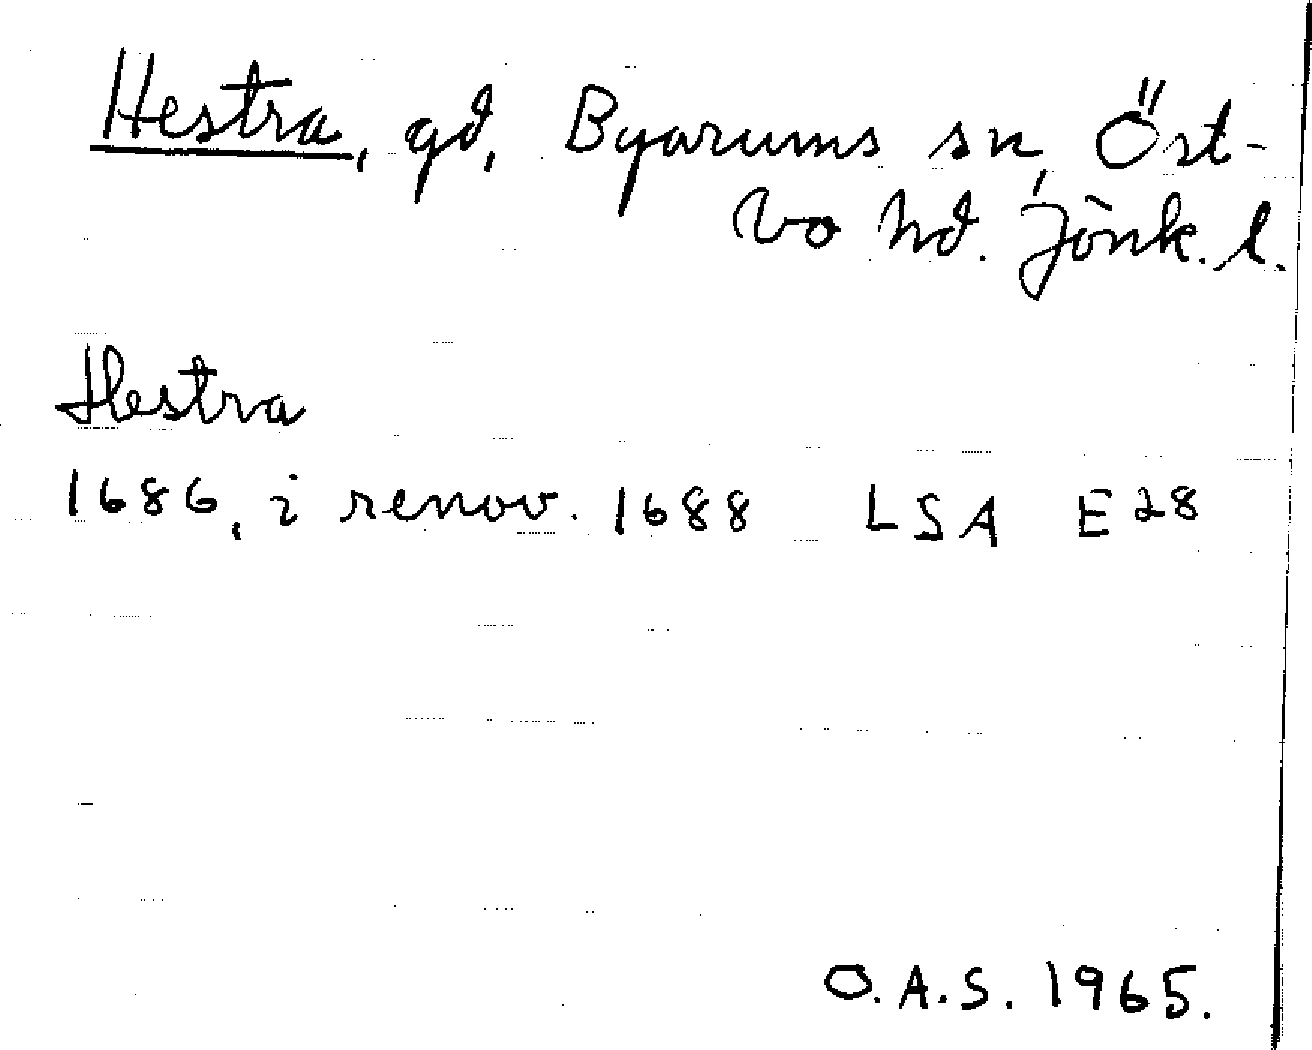 Hestra, gd, Byarums sn, Öst-
bo hd. Jönk. l.
Hestra
1686, i renov. 1688 LSA E 28
O.A.S. 1965.